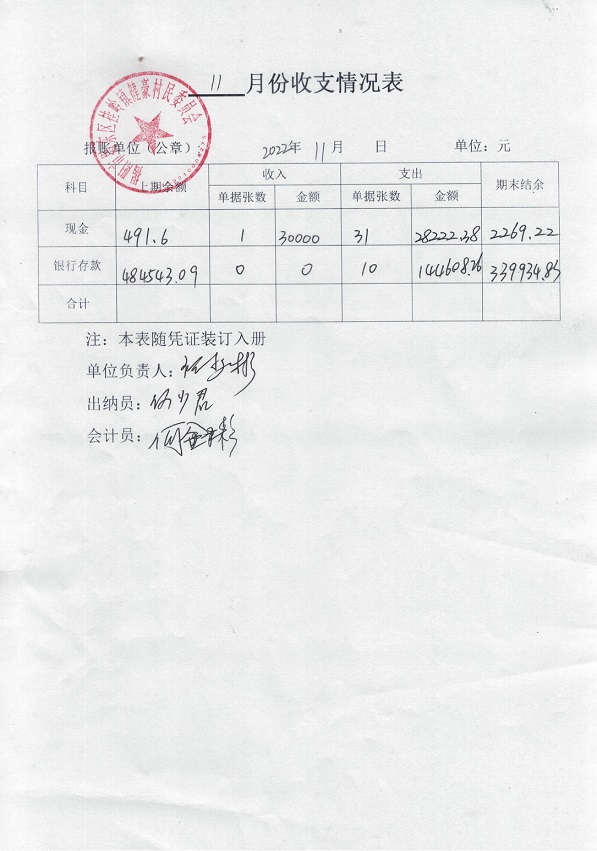 11 月份收支情况表
报账单位（公章） 2022年 11月 日 单位：元
科目 上期余额 收入 支出 期末结余
单据张数 金额 单据张数 金额
现金 491.6 1 30000 31 28222.38 2269.22
银行存款 484543.09 0 0 10 144608.26 339934.83
合计
注：本表随凭证装订入册
单位负责人：
出纳员：何少君
会计员：